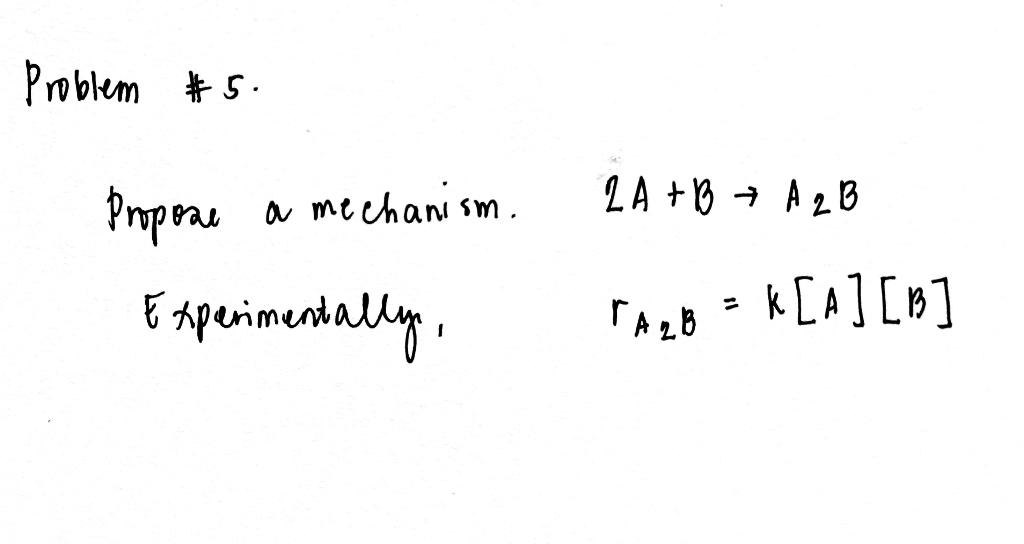 Problem # 5.
Propose a mechanism. 2A + B → A₂B
Experimentally, r_A₂B = k[A][B]